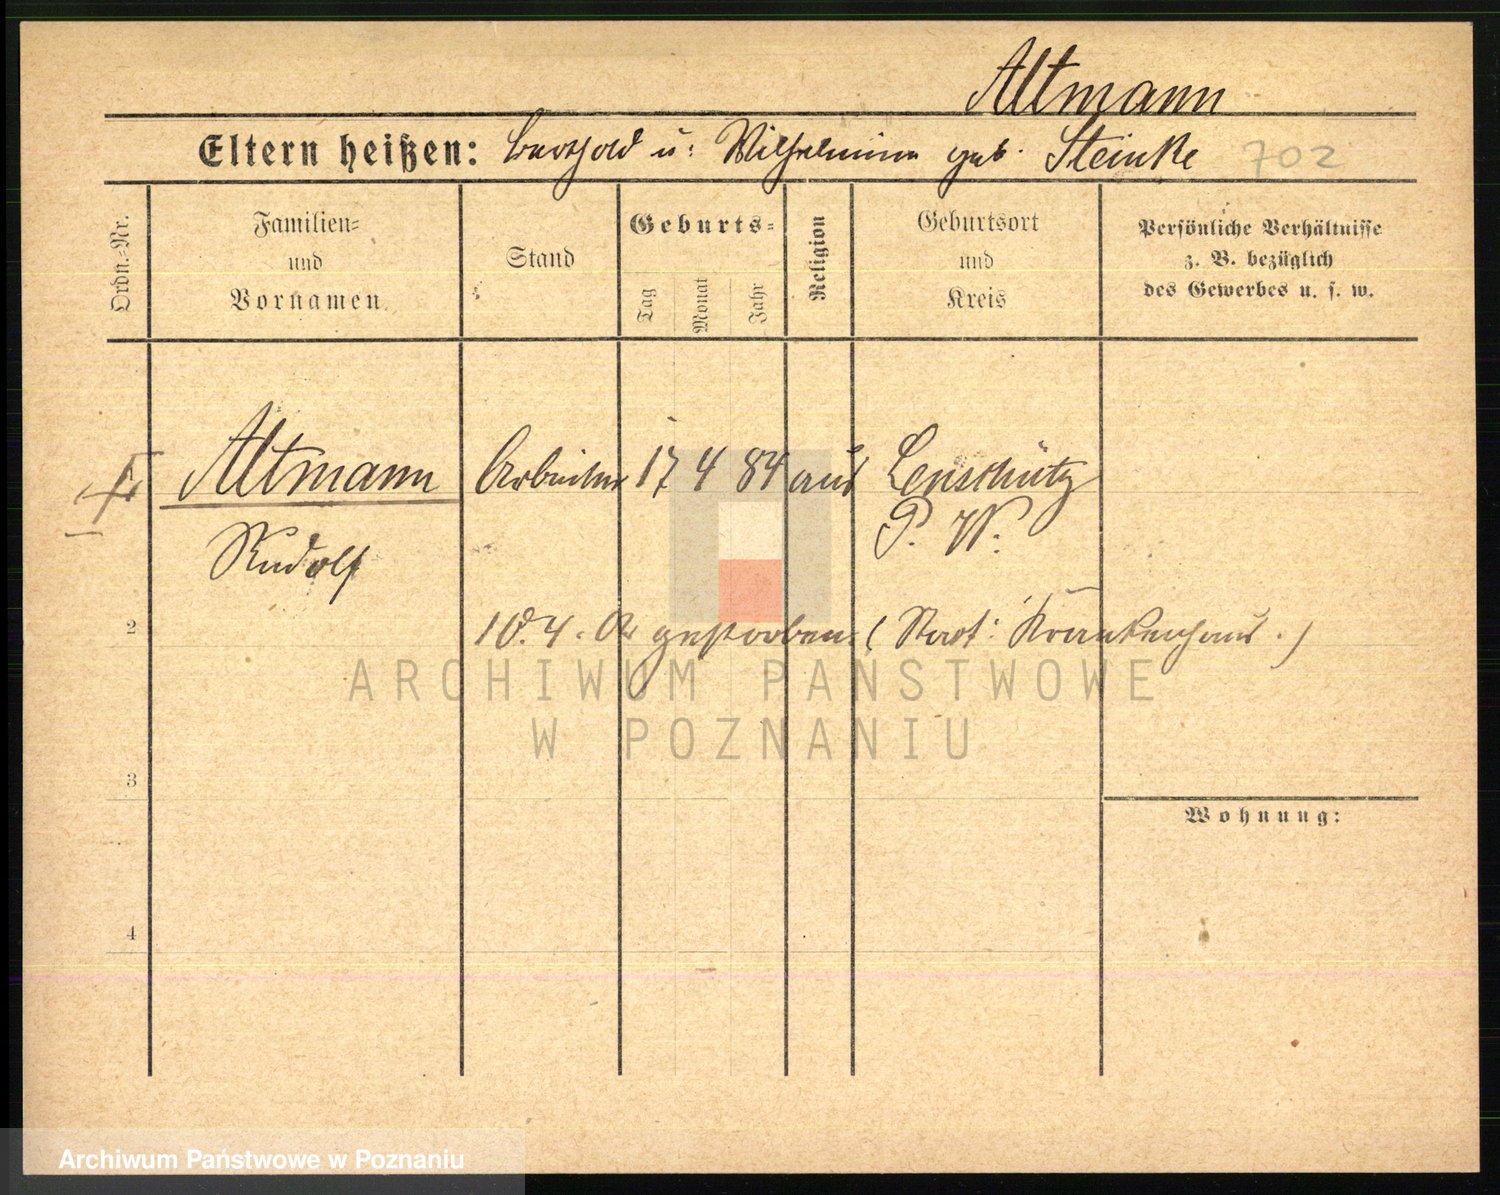 Altmann
Eltern heißen: Berthold u: Wilhelmine geb. Steinke 702
Ordn.-Nr.
Familien-
und
Vornamen
Stand
Geburts-
Tag
Monat
Jahr
Religion
Geburtsort
und
Kreis
Persönliche Verhältnisse
z. B. bezüglich
des Gewerbes u. s. w.
Altmann Arbeiter 17 4 84
Rudolf
2
gestorben. (Stadt: Krankenhaus.)
ARCHIWUM PAŃSTWOWE
W POZNANIU
3
Wohnung:
4
Archiwum Państwowe w Poznaniu